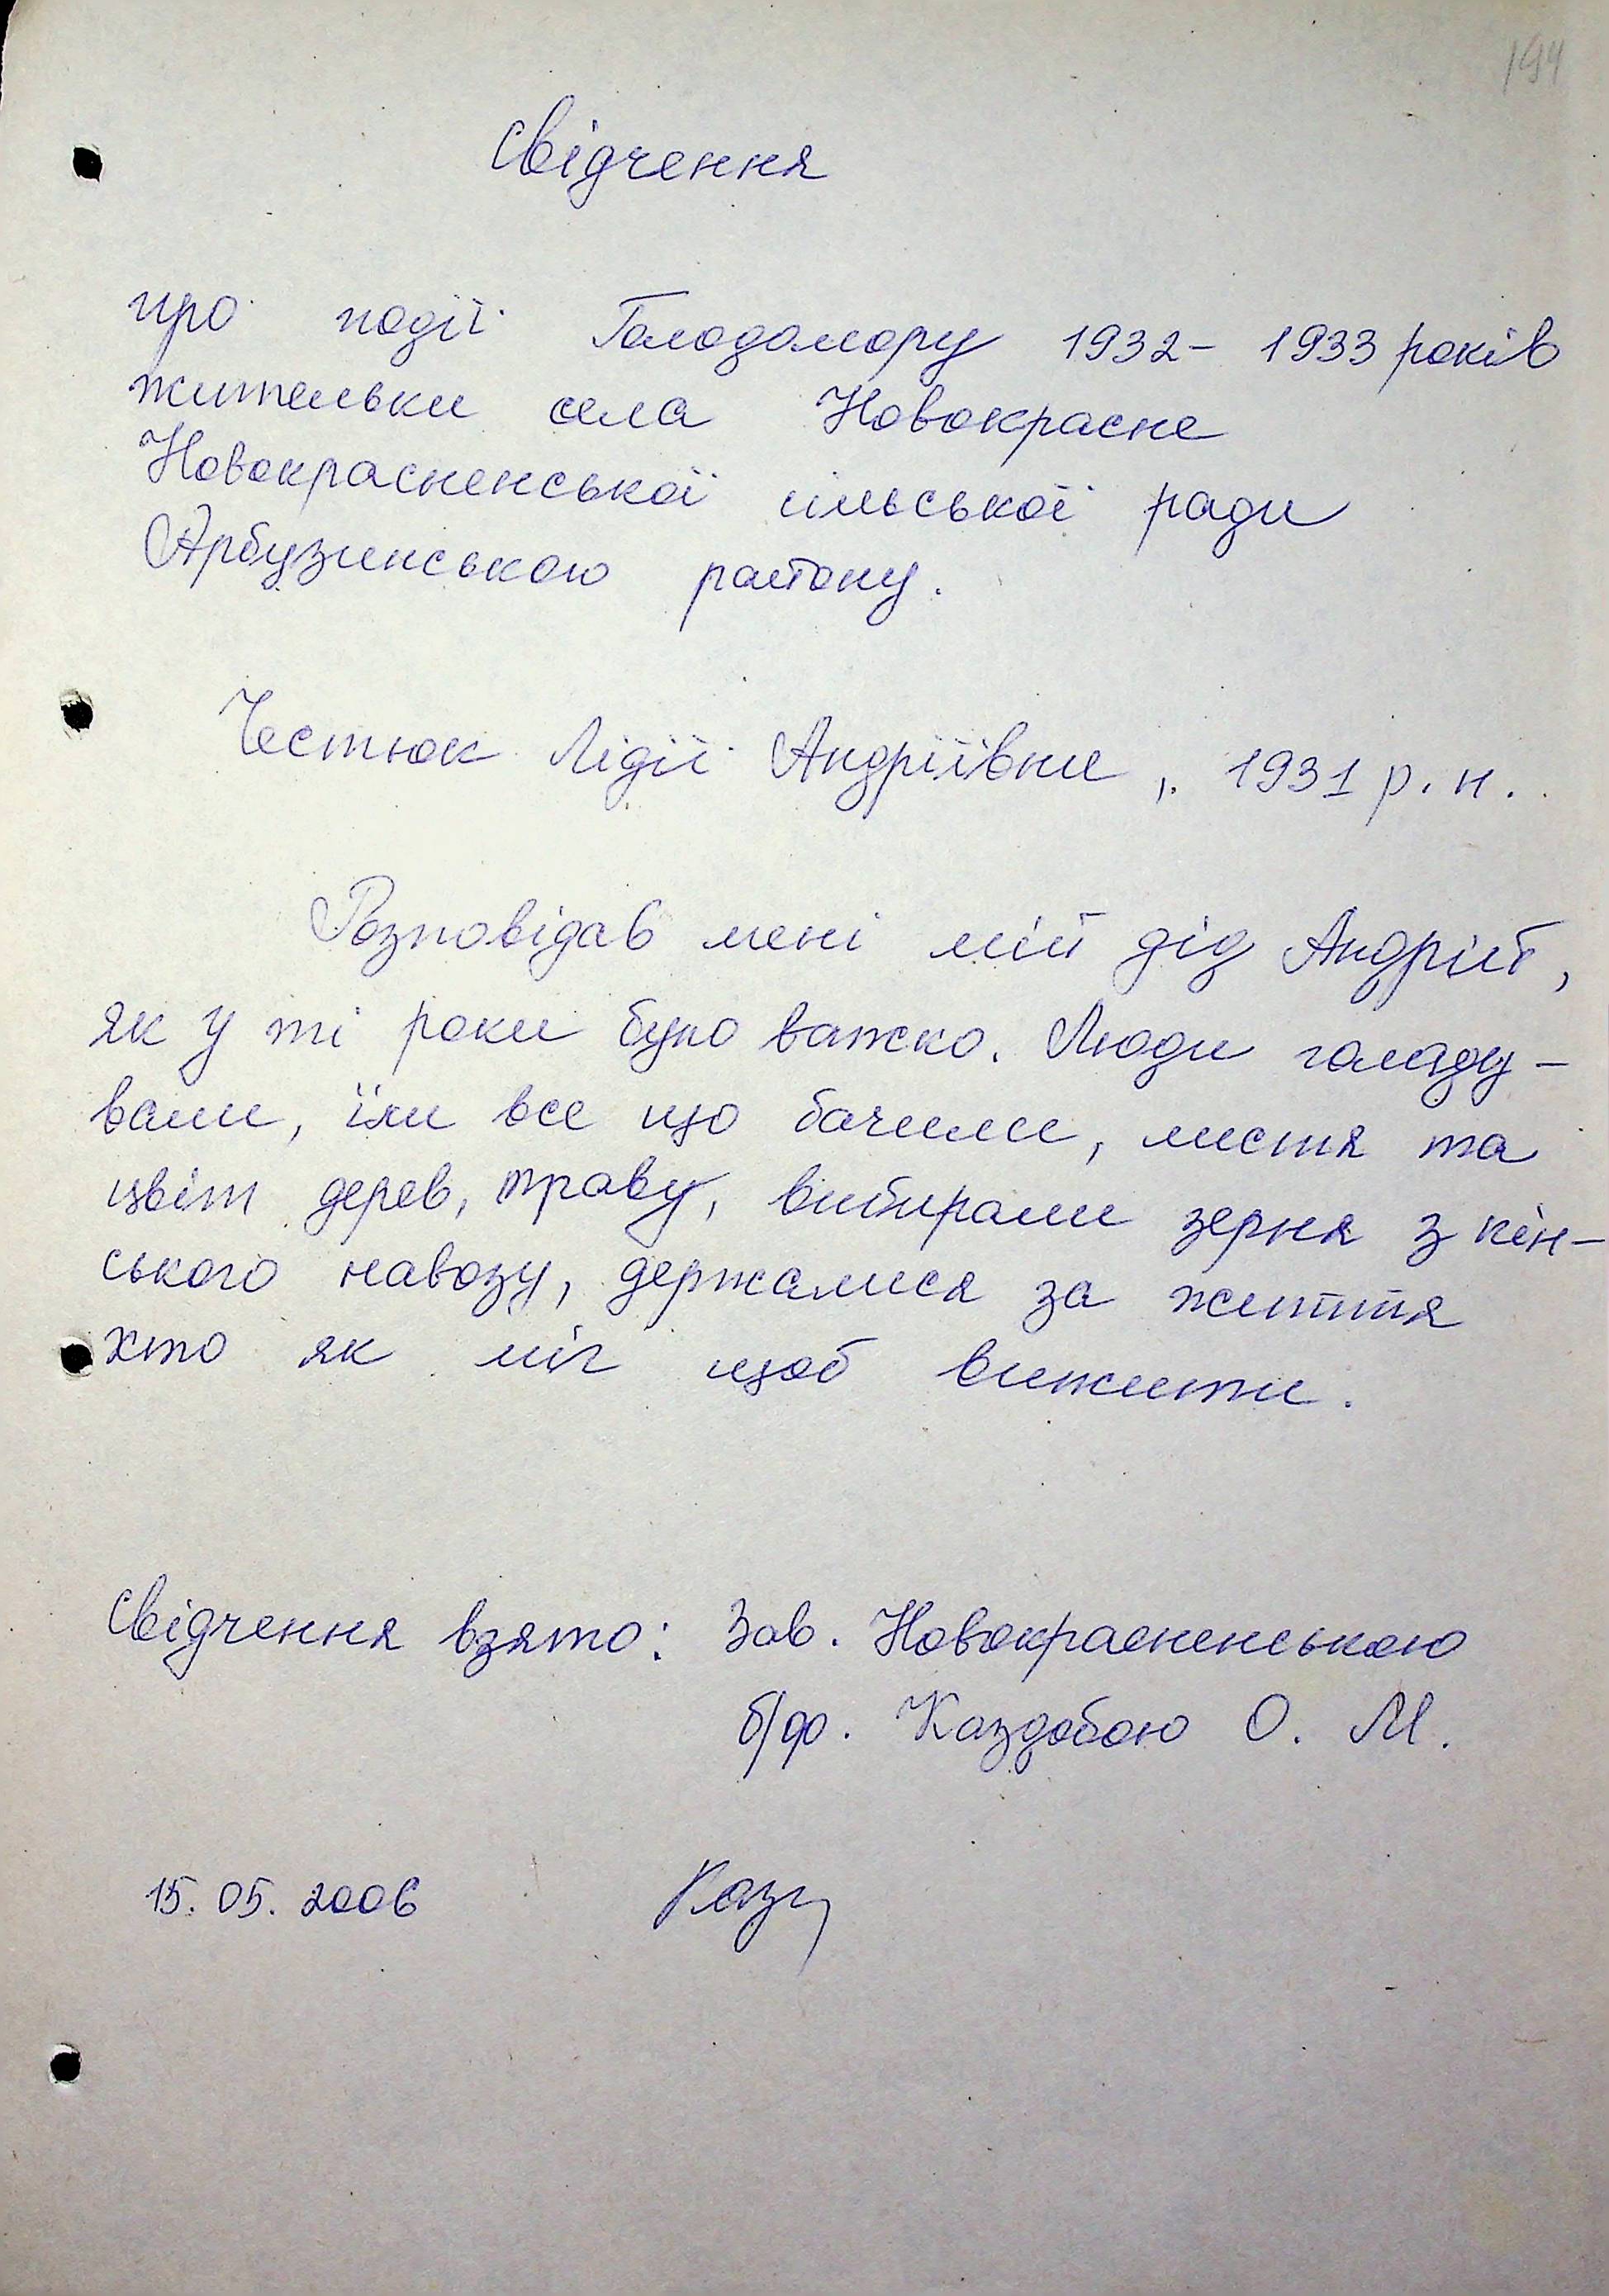 194
Свідчення
про події Голодомору 1932- 1933 років
жительки села Новокрасне
Новокрасненської сільської ради
Арбузинського району.
Честюк Лідії Андріївни, 1931 р. н.
Розповідав мені мій дід Андрій,
як у ті роки було важко. Люди голоду-
вали, їли все що бачили, листя та
цвіт дерев, траву, вибирали зерня з кін-
ського навозу, держалися за життя
хто як міг щоб вижити.
Свідчення взято: Зав. Новокрасненською
б/ф. Каздобою О. М.
15. 05. 2006